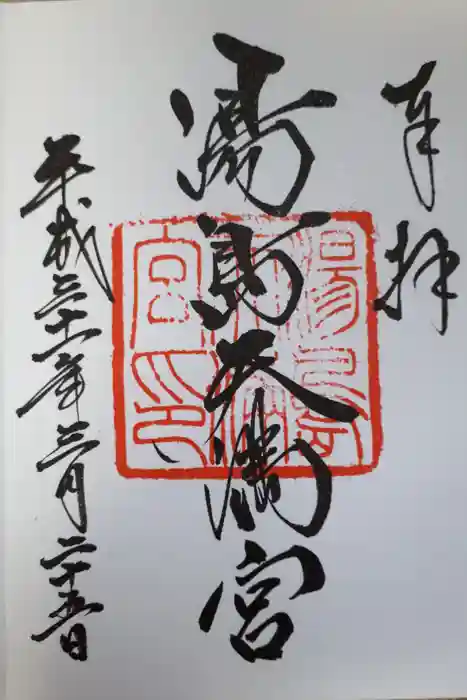 奉拝
湯島天満宮
平成三十一年三月二十五日